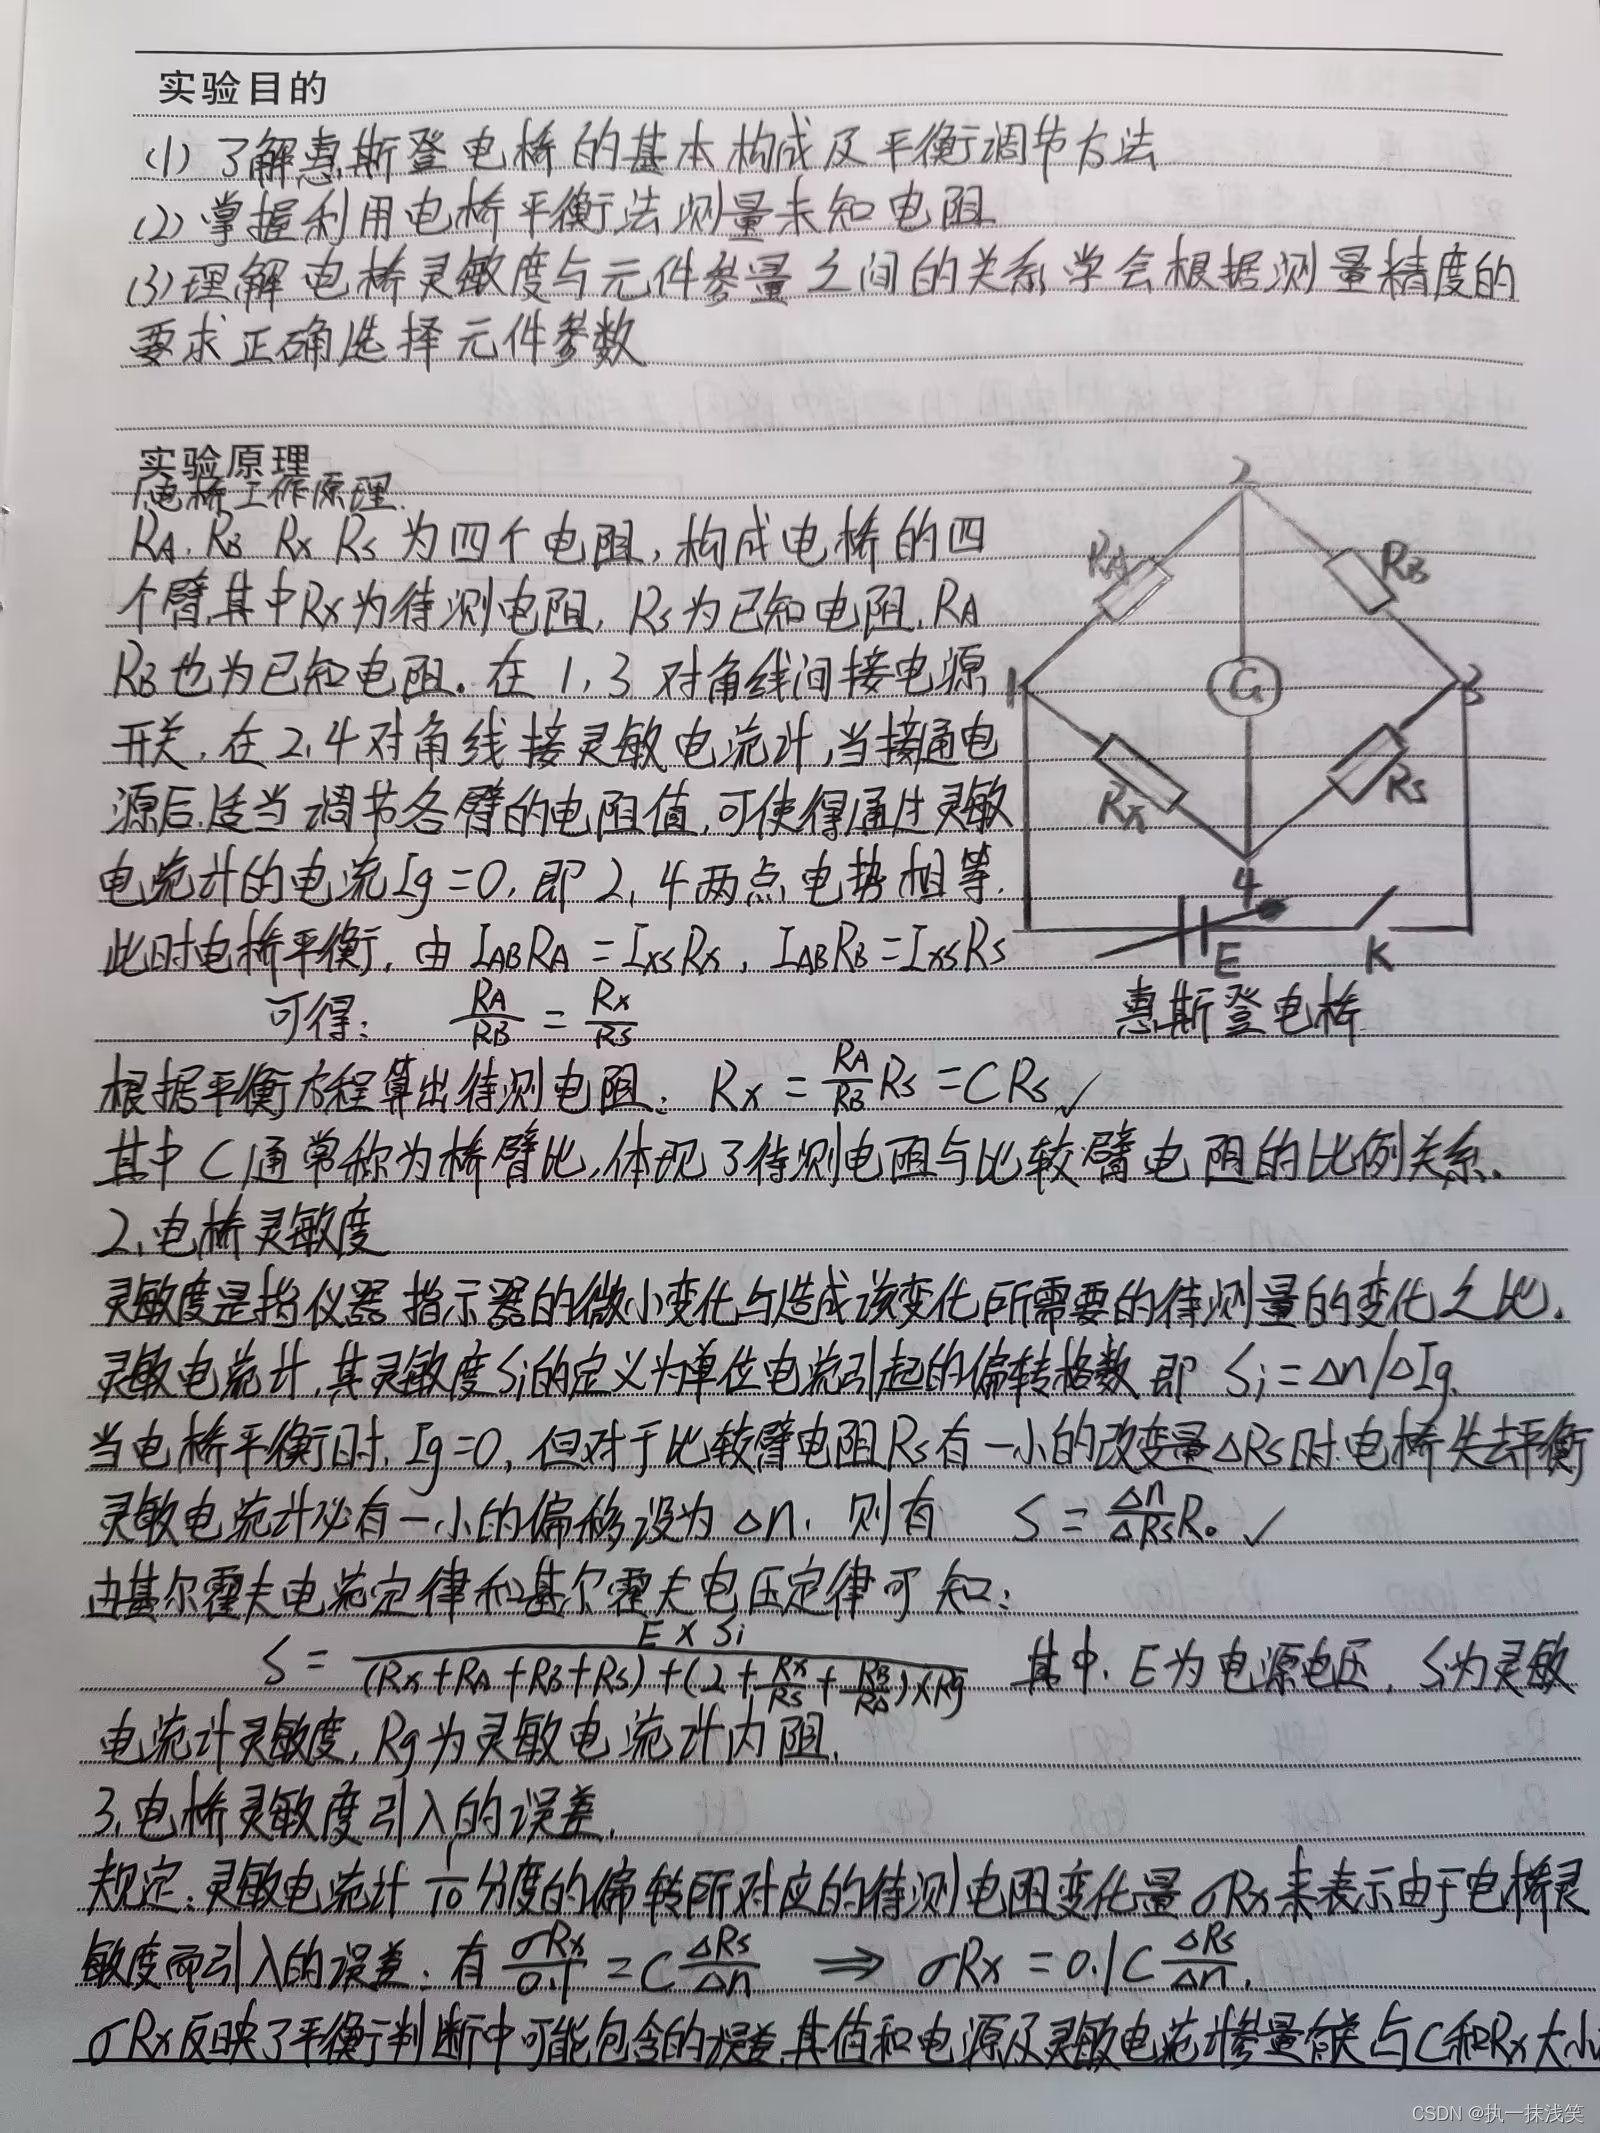 实验目的
(1) 了解惠斯登电桥的基本构成及平衡调节方法
(2) 掌握利用电桥平衡法测量未知电阻
(3) 理解电桥灵敏度与元件参量之间的关系,学会根据测量精度的
要求正确选择元件参数
实验原理
1.电桥工作原理.
RA. RB Rx Rs 为四个电阻,构成电桥的四
个臂,其中Rx为待测电阻, Rs为已知电阻, RA
RB也为已知电阻。在 1, 3 对角线间接电源
开关,在2,4对角线接灵敏电流计,当接通电
源后,适当调节各臂的电阻值,可使得通过灵敏
电流计的电流Ig=0,即2,4两点电势相等.
此时电桥平衡,由 IABRA=IXSRX, IABRB=IXSRS
可得: RA/RB = Rx/Rs
2
RA
RB
1
G
3
Rx
Rs
4
E
K
惠斯登电桥
根据平衡方程算出待测电阻: Rx = RA/RB Rs = CRs ✓
其中 C 通常称为桥臂比,体现了待测电阻与比较臂电阻的比例关系.
2.电桥灵敏度
灵敏度是指仪器指示器的微小变化与造成该变化所需要的待测量的变化之比.
灵敏电流计,其灵敏度Si的定义为单位电流引起的偏转格数 即 Si=Δn/ΔIg.
当电桥平衡时, Ig=0, 但对于比较臂电阻Rs有一小的改变量ΔRs时,电桥失去平衡
灵敏电流计必有一小的偏移,设为Δn, 则有 S = Δn/ΔRs R。 ✓
由基尔霍夫电流定律和基尔霍夫电压定律可知:
S = E×Si/((Rx+RA+RB+Rs)+(2+Rx/Rs+RB/RA)×Rg) 其中, E为电源电压, Si为灵敏
电流计灵敏度, Rg为灵敏电流计内阻.
3.电桥灵敏度引入的误差.
规定:灵敏电流计1/10分度的偏转所对应的待测电阻变化量 σRx 来表示由于电桥灵
敏度而引入的误差.有 σRx/0.1 = C ΔRs/Δn ⇒ σRx = 0.1C ΔRs/Δn.
σRx反映了平衡判断中可能包含的误差,其值和电源及灵敏电流计参量有关,与C和Rx大小
CSDN @执一抹浅笑